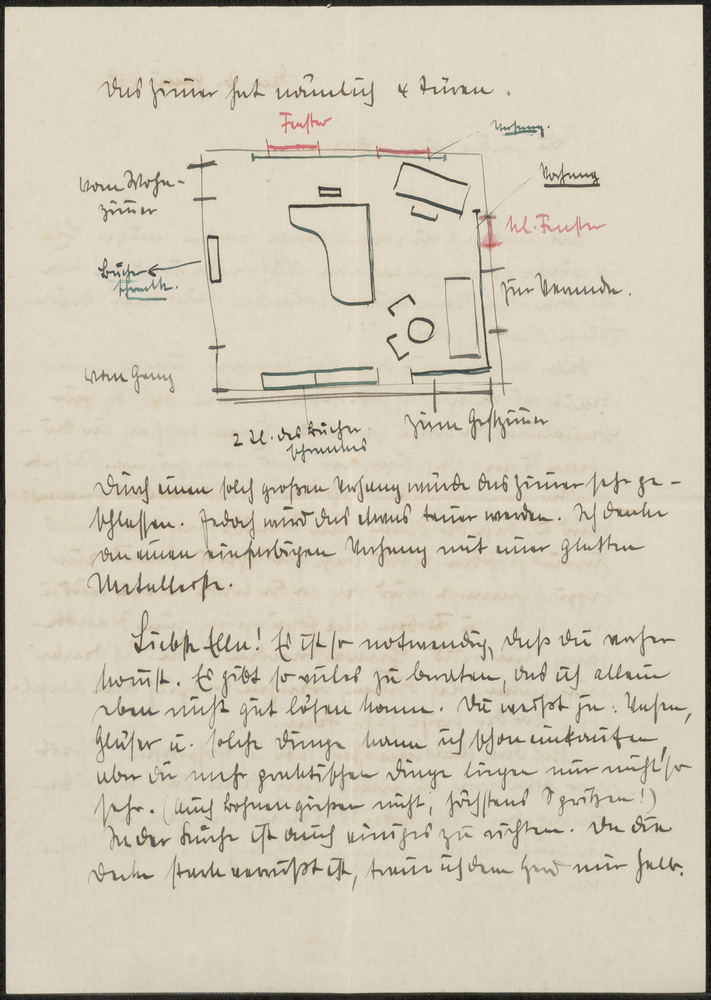 Das Zimmer hat nämlich 4 Türen.
Fenster
Vorhang.
vom Wohn-
zimmer
Vorhang
kl. Fenster
Bücher
schrank.
zur Veranda.
vom Gang
2 Tl. des Bücher
schrankes
zum Gastzimmer
Durch einen solch großen Vorhang würde das Zimmer sehr ge-
schlossen. Jedoch wird das etwas teuer werden. Ich denke
an einen einfarbigen Vorhang mit einer glatten
Metalleiste.
Liebste Ella! Es ist so notwendig, daß du vorher
kommst. Es gibt so vieles zu beraten, das ich allein
eben nicht gut lösen kann. Du weißt ja: Vasen,
Gläser u. solche Dinge kann ich schon einkaufen,
aber die mehr praktischen Dinge liegen mir nicht so
sehr. (Auch Bohnen gießen nicht, höchstens Spritzen!)
In der Küche ist auch einiges zu richten. Da die
Decke stark verrußt ist, traue ich dem Herd nur halb.